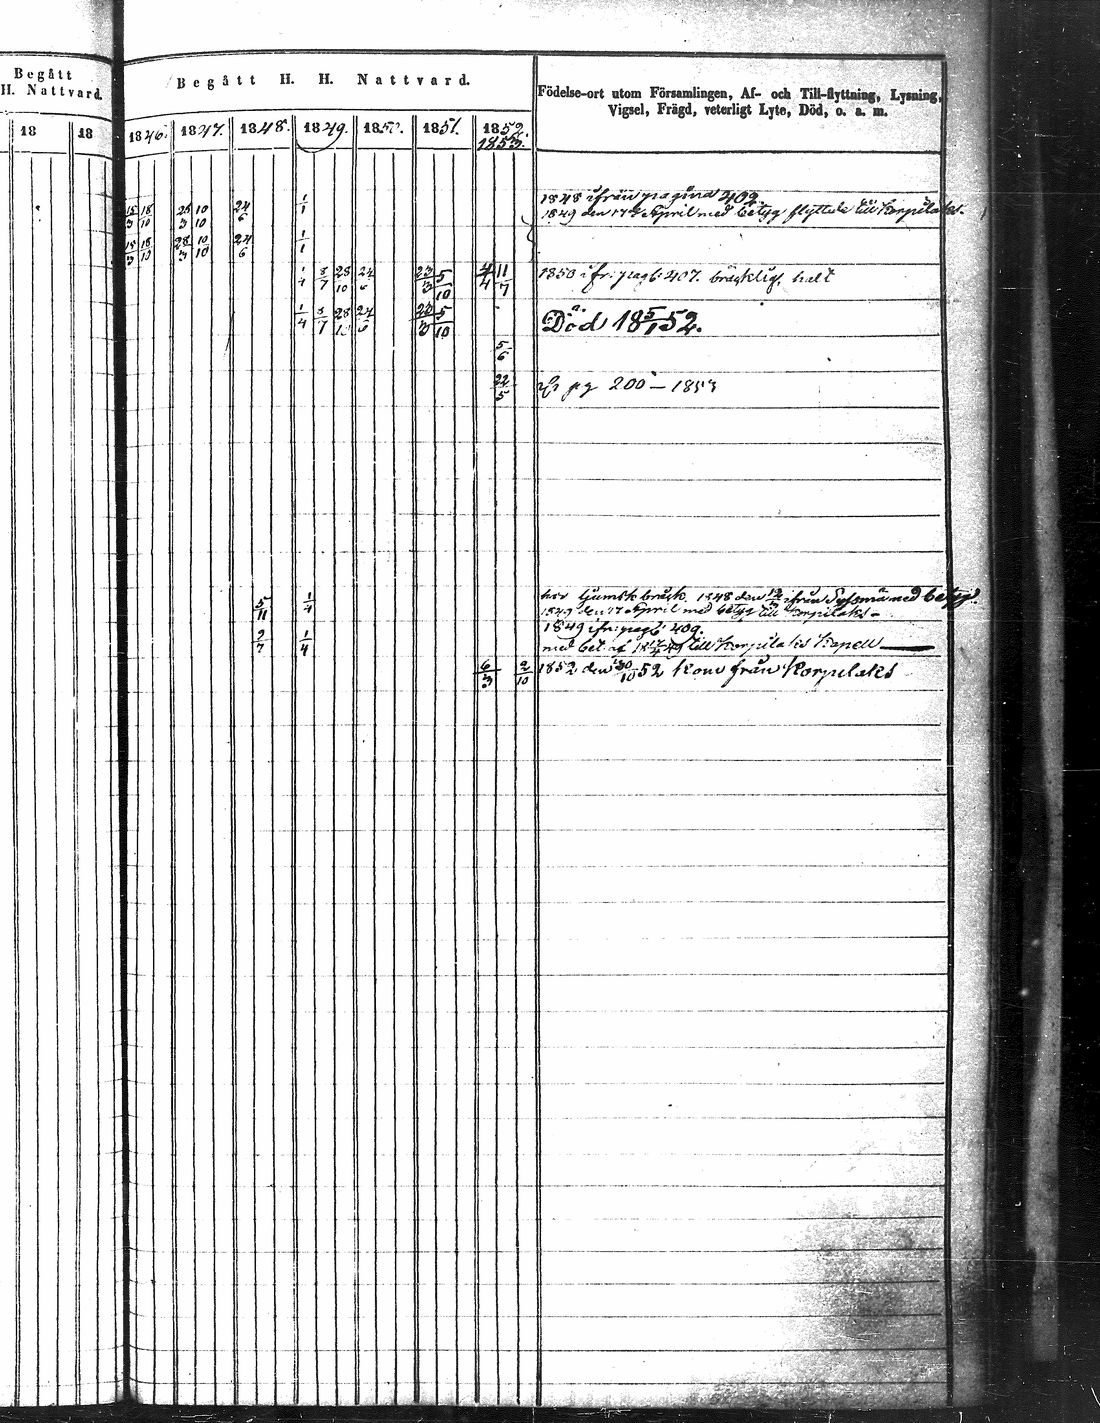 Begått
H. Nattvard.
18 18
Begått H. H. Nattvard.
1846. 1847. 1848. 1849. 1850. 1851. 1852.
1853.
Födelse-ort utom Församlingen, Af- och Till-flyttning, Lysning,
Vigsel, Frägd, veterligt Lyte, Död, o. a. m.
15/3 18/10 28/3 10/10 24/6 1/1 1848 ifrån pagina 402.
1849 den 17 April med betyg flyttade till Korpilaks.
18/3 18/10 28/3 10/10 24/6 1/1
1/4 8/7 28/10 24/6 23/3 5/10 4/4 11/7 1850 ifr: pag: 407. bräcklig, halt
1/4 8/7 28/10 24/6 23/3 5/10 Död 18 5/1 52.
5/6
22/5 pg 200 — 1853
5/11 1/4 har ljumsk bråck. 1848 den ifrån Sysmä med betyg.
1849 den 17 April med betyg till Korpilaks-
2/7 1/4 1849 ifr: pag: 409.
med bet: af 18 17/4 49 till Korpilaks Kapell
6/3 2/10 1852 den 30/10 52 kom från Korpilaks